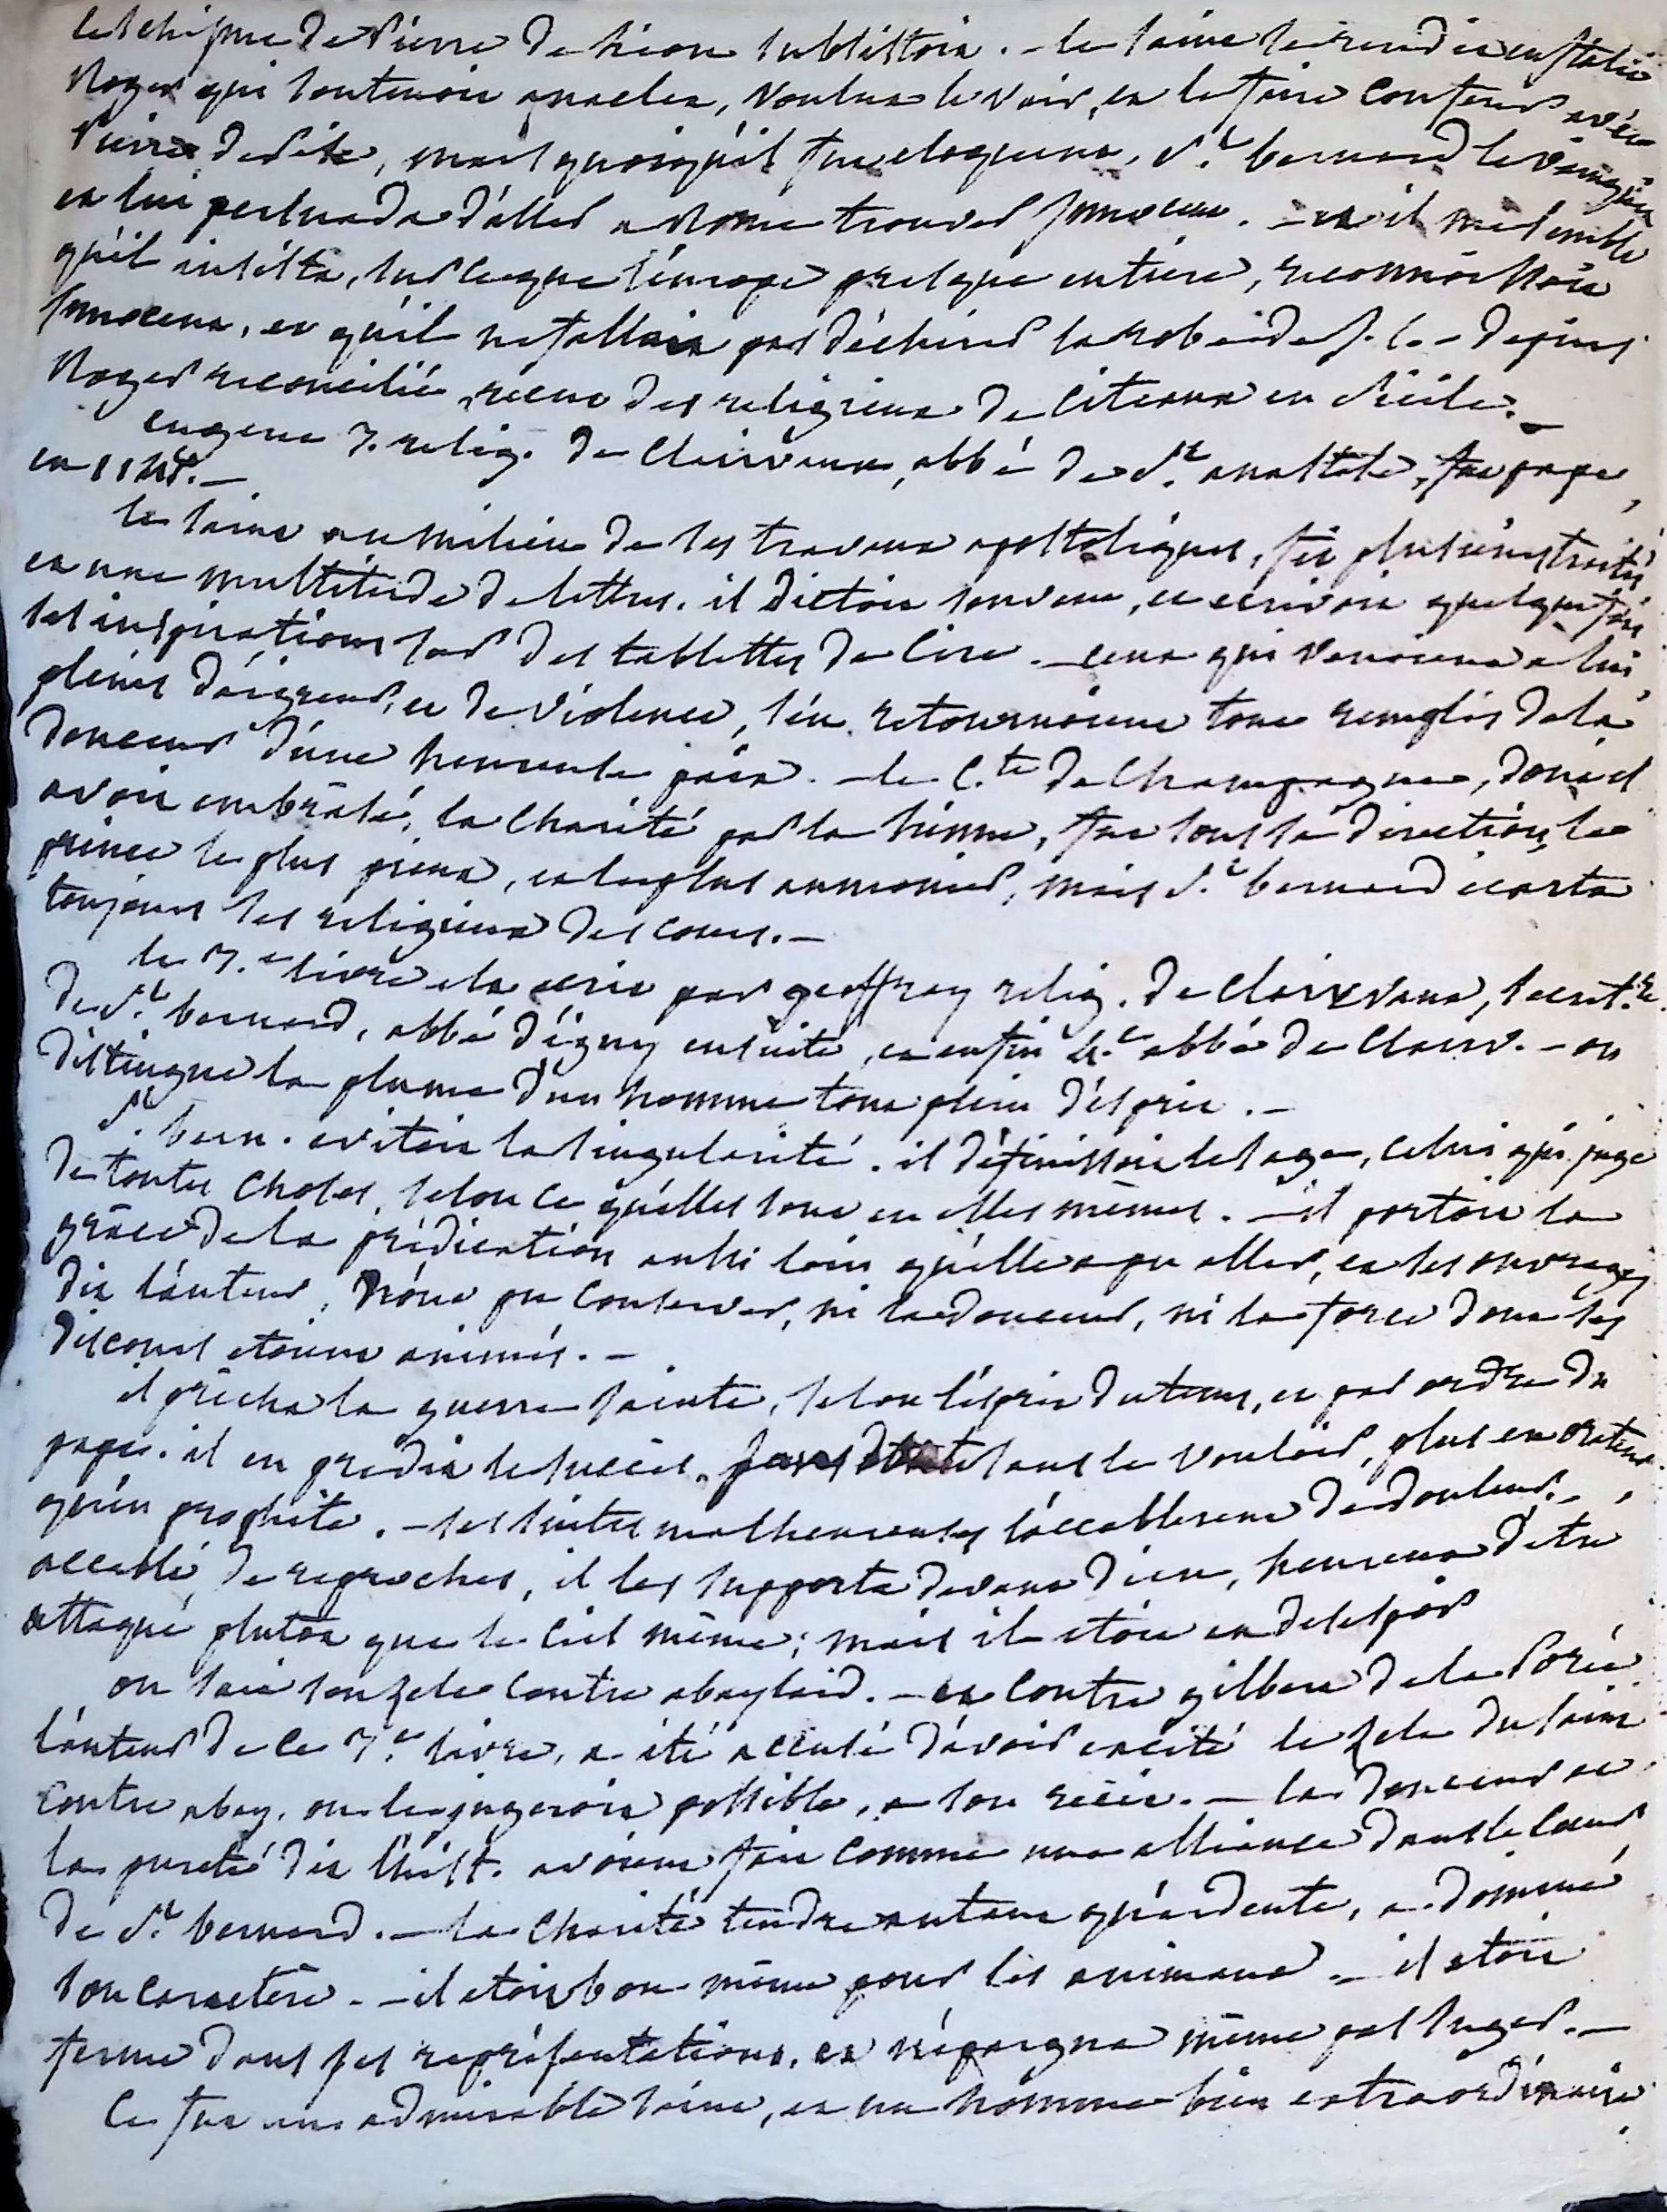 le schisme de Pierre de Léon subsistoit. – le saint se rendit en Italie
Roger qui soutenoit anaclet, voulut le voir, et le faire conferer avec
Pierre de Pise, mais quoiqu'il fut eloquent, St. bernard le vainquit
et lui persuada d'aller a Rome trouver Innocent. – et il me semble
qu'il insista, sur ce que l'europe presque entiere, reconnoissoit
Innocent, et qu'il ne falloit pas déchirer la robe de J. C. – depuis
Roger reconcilié, reçut des religieux de Citeaux en Sicile. –
eugene 3. relig. de Clairvaux, abbé de St. anastase, fut pape,
en 1145. –
le saint au milieu de ses travaux apostoliques, fit plusieurs traités
et une multitude de lettres. il dictoit souvent, et ecrivoit quelquefois
ses inspirations sur des tablettes de cire. – ceux qui venoient a lui,
pleins d'aigreur, et de violence, s'en retournoient tout remplis de la
douceur d'une heureuse paix. – le C.te de Champagne, dont il
avoit embrasé, la charité par la sienne, fut sous sa direction, le
prince le plus pieux, et le plus aumonier, mais St. bernard ecarta
toujours ses religieux des cours. –
le 3.e livre est ecrit par geoffroy relig. de Clairvaux, secret.re
de St. bernard, abbé d'igny ensuite, et enfin 4.e abbé de Clairv. – on
distingue la plume d'un homme tout plein d'esprit. –
St. bern. evitoit la singularité. il définissoit le sage, celui qui juge
de toutes choses, selon ce qu'elles sont en elles mêmes. – il portoit la
grâce de la prédication aussi loin qu'elle a pu aller, et ses ouvrages
dit l'auteur, n'ont pu conserver, ni la douceur, ni la force dont ses
discours etoient animés. –
il prêcha la guerre sainte, selon l'esprit du tems, et par ordre du
pape. il en predit le succès, sans le vouloir, plus en orateur
qu'en prophète. – les suites malheureuses l'accablerent de douleur. –
accablé de reproches, il les supporta devant dieu, heureux d'etre
attaqué plutôt que le Ciel même; mais il etoit au desespoir
on sait son zele contre abaylard. – et contre gilbert de la Porée
l'auteur de ce 3.e livre, a été accusé d'avoir excité le zele du saint
contre abay. on le jugeroit possible, a son récit. – la douceur et
la pureté dit l'hist. avoient fait comme une alliance dans le cœur
de St. bernard. – la charité tendre autant qu'ardente, a dominé
son caractère. – il etoit bon même pour les animaux. – il etoit
ferme dans ses représentations, et n'épargna même pas Suger. –
Ce fut un admirable saint, et un homme bien extraordinaire.